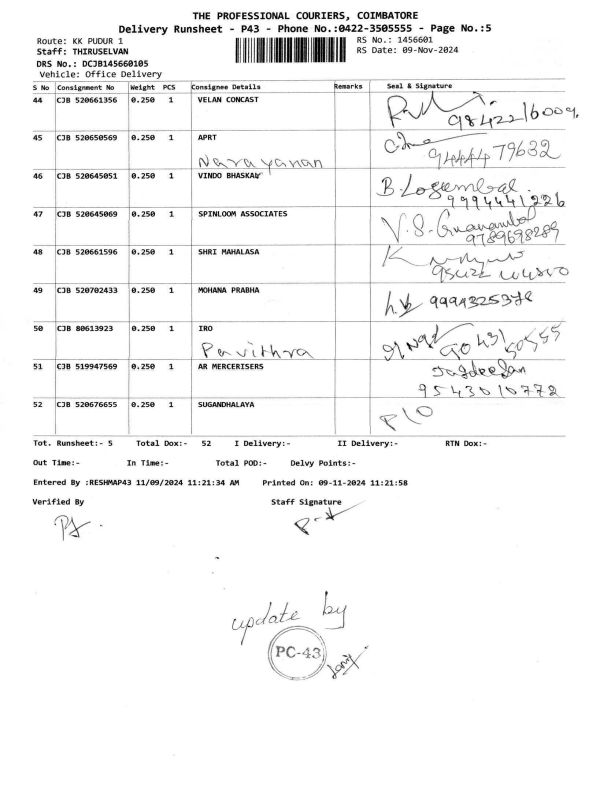 THE PROFESSIONAL COURIERS, COIMBATORE
Delivery Runsheet - P43 - Phone No.:0422-3505555 - Page No.:5
Route: KK PUDUR 1 RS No.: 1456601
Staff: THIRUSELVAN RS Date: 09-Nov-2024
DRS No.: DCJB145660105
Vehicle: Office Delivery
S No Consignment No Weight PCS Consignee Details Remarks Seal & Signature
44 CJB 520661356 0.250 1 VELAN CONCAST
9842216009.
45 CJB 520650569 0.250 1 APRT
Narayanan 9444479632
46 CJB 520645051 0.250 1 VINDO BHASKAV B. Logambal
9994441226
47 CJB 520645069 0.250 1 SPINLOOM ASSOCIATES V.S. Gnanambal
9789698289
48 CJB 520661596 0.250 1 SHRI MAHALASA
49 CJB 520702433 0.250 1 MOHANA PRABHA 9994325378
50 CJB 80613923 0.250 1 IRO
Pavithra 90431 50555
51 CJB 519947569 0.250 1 AR MERCERISERS Jagdeesan
9543010772
52 CJB 520676655 0.250 1 SUGANDHALAYA P/O
Tot. Runsheet:- 5 Total Dox:- 52 I Delivery:- II Delivery:- RTN Dox:-
Out Time:- In Time:- Total POD:- Delvy Points:-
Entered By :RESHMAP43 11/09/2024 11:21:34 AM Printed On: 09-11-2024 11:21:58
Verified By Staff Signature
update by
PC-43